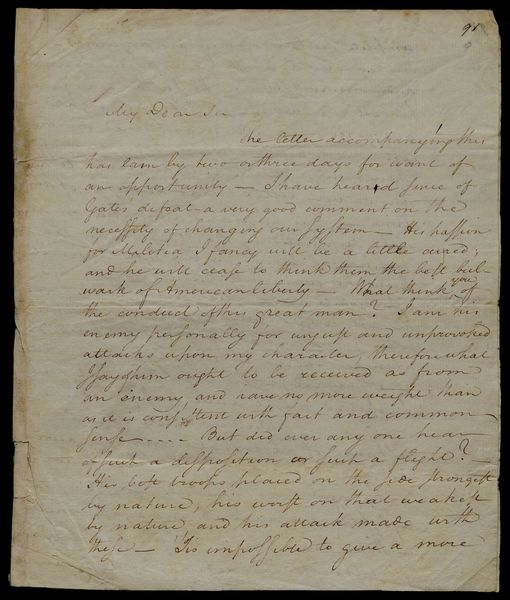 9
My Dear Sir
he letter accompanying this
has lain by two or three days for want of
an opportunity — I have heard since of
Gates defeat a very good comment on the
necessity of changing our system — His passion
for Militia I fancy will be a little cured;
and he will cease to think them the best bul-
wark of American liberty — What think you of
the conduct of this great man? I am his
enemy personally for unjust and unprovoked
attacks upon my character, therefore what
I say of him ought to be received as from
an enemy, and have no more weight than
as it is consistent with fact and common
sense .... But did ever any one hear
of such a disposition or such a flight?
His best troops placed on the side strongest
by nature, his worst on that weakest
by nature and his attack made with
these — Tis impossible to give a more